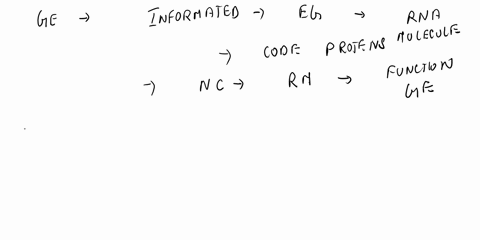 GE → INFORMATED → EG → RNA MOLECULE
→ CODE PROTENS
→ NC → RN → FUNCTION GE